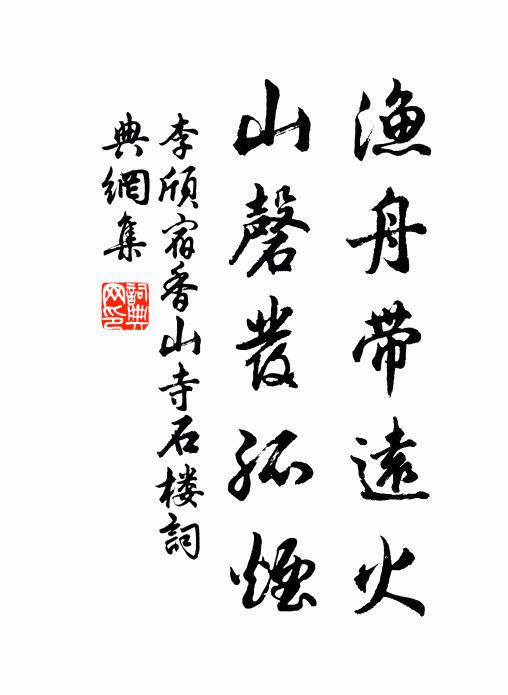 漁舟帶遠火
山磬發孤煙
李頎宿香山寺石楼詞
典網集
詞典网印